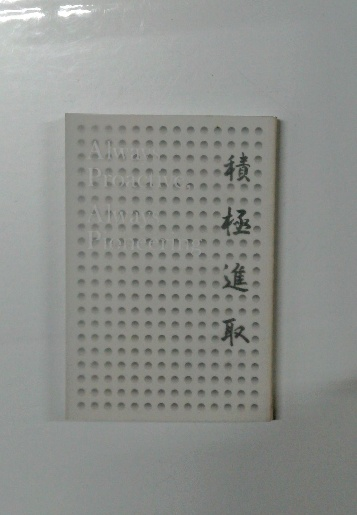 Always
Proactive,
Always
Pioneering
積極進取